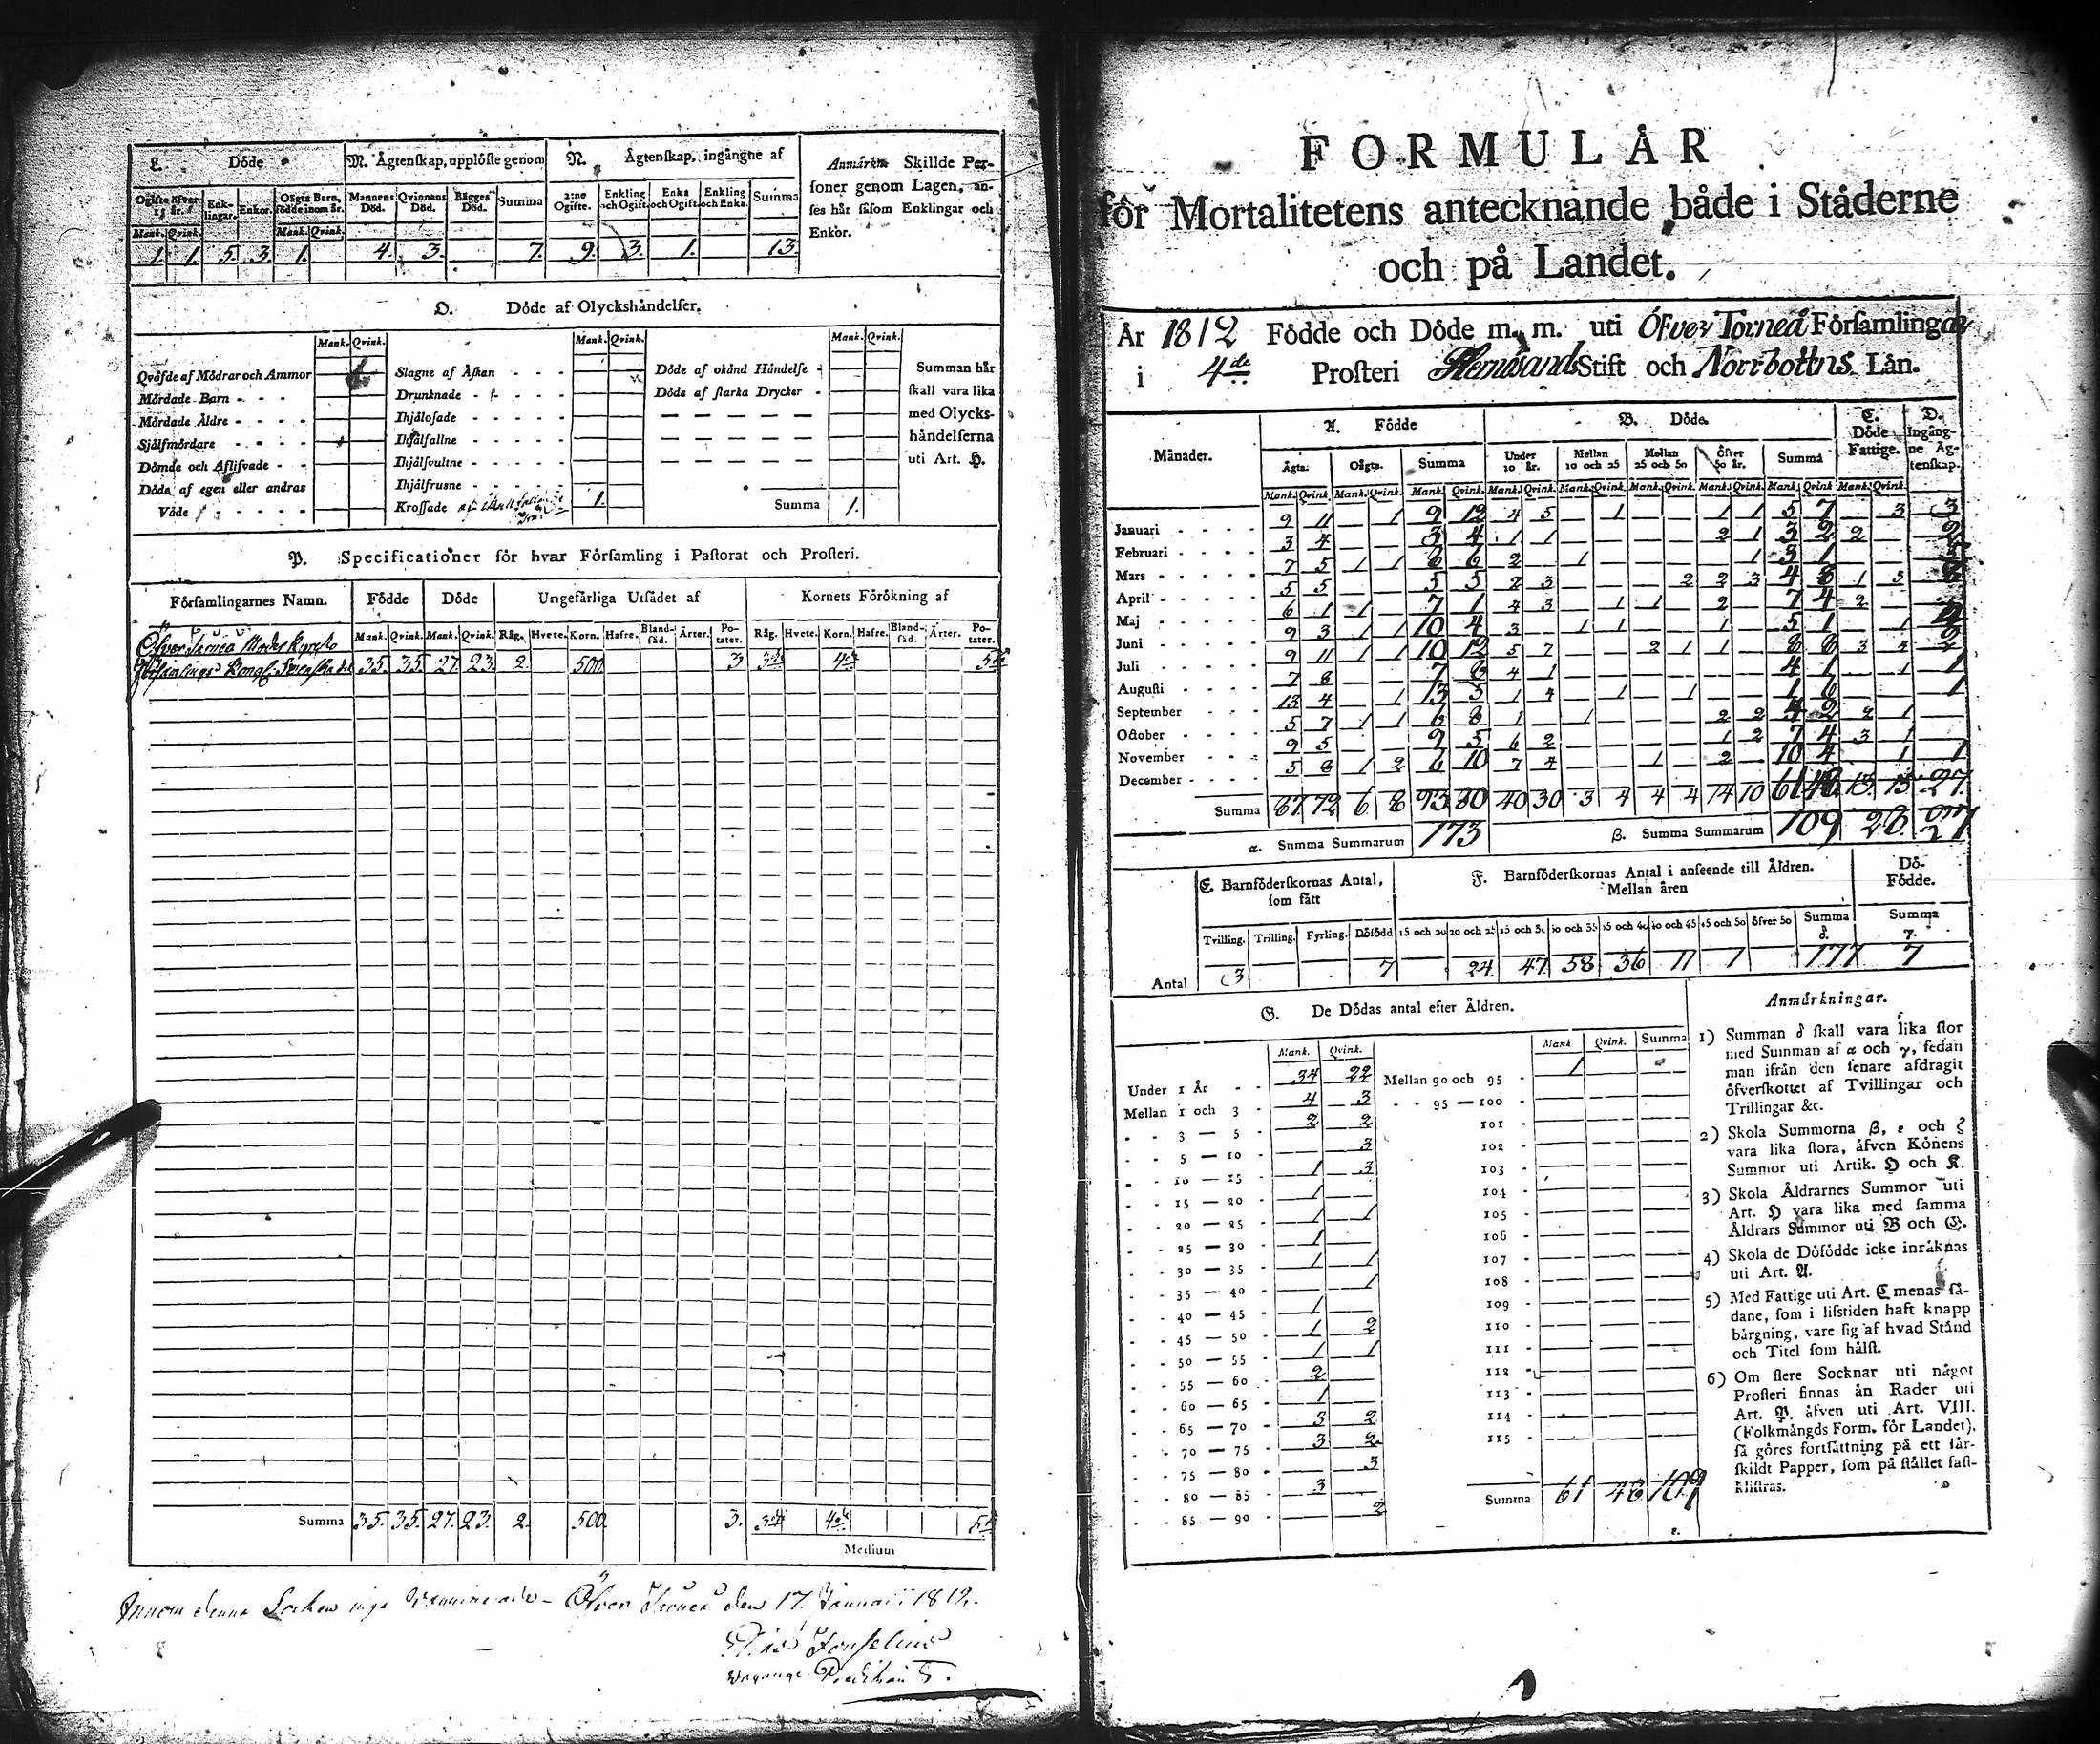 L. Döde
M. Ägtenskap, upplöste genom
N. Ägtenskap, ingångne af
Anmärkn. Skillde Per-
soner genom Lagen, an-
ses här såsom Enklingar och
Enkor.
Ogifte öfver 15 år. Enk-lingar. Enkor. Oägta Barn, födde inom år. Mannens Död. Qvinnans Död. Bägges Död. Summa 2:ne Ogifte. Enkling och Ogift. Enka och Ogift. Enkling och Enka. Summa
Mank. Qvink. Mank. Qvink.
1. 1. 5. 3. 1. 4. 3. 7. 9. 3. 1. 13.
O. Döde af Olyckshändelser.
Mank. Qvink. Mank. Qvink. Mank. Qvink.
Qväfde af Mödrar och Ammor Slagne af Åskan - - - Döde af okänd Händelse - Summan här
Mördade Barn - - - Drunknade - - - - Döde af starka Drycker - skall vara lika
Mördade Äldre - - - - Ihjälosade - - - - med Olycks-
Sjelfmördare - - - - Ihjälfallne - - - - händelserna
Dömde och Aflifvade - - Ihjälsvultne - - - - uti Art. H.
Döde af egen eller andras Ihjälfrusne - - - -
Våde - - - - - Krossade 1. Summa 1.
P. Specificationer för hvar Församling i Pastorat och Prosteri.
Församlingarnes Namn. Födde Döde Ungefärliga Utsädet af Kornets Förökning af
Mank. Qvink. Mank. Qvink. Råg. Hvete. Korn. Hafre. Bland-säd. Ärter. Po-tater. Råg. Hvete. Korn. Hafre. Bland-säd. Ärter. Po-tater.
Öfver Torneå Moder Kyrko
Församlings 35. 35. 27. 23. 2. 500. 3
Summa 35. 35. 27. 23. 2. 500. 3.
Medium
Innom denna Socken inga Öfver Torneå den 17. Januarii 1812.
FORMULÄR
för Mortalitetens antecknande både i Städerne
och på Landet.
År 1812 Födde och Döde m. m. uti Öfver Torneå Församlingar
i 4de Prosteri Hernösands Stift och Norrbottns Län.
Månader. A. Födde B. Döde. C. Döde Fattige. D. Ingång-ne Äg-tenskap.
Ägta. Oägta. Summa Under 10 år. Mellan 10 och 25 Mellan 25 och 50 Öfver 50 år. Summa
Mank. Qvink. Mank. Qvink. Mank. Qvink. Mank. Qvink. Mank. Qvink. Mank. Qvink. Mank. Qvink. Mank. Qvink. Mank. Qvink.
Januari - - - - 9 11 — 1 9 12 4 5 — 1 — — 1 1 5 7 3 3
Februari - - - - 3 4 — — 3 4 1 1 — — — — 2 1 3 2 2
Mars - - - - - 7 5 1 1 8 6 2 — 1 — — — — 1 3 1
April - - - - - 5 5 — — 5 5 2 3 — — — 2 2 3 4 8 1 3
Maj - - - - - 6 1 1 — 7 1 4 3 — 1 1 — 2 — 7 4 2
Juni - - - - - 9 3 1 1 10 4 3 — 1 1 — — 1 — 5 1 1
Juli - - - - - 9 11 1 1 10 12 5 7 — — 2 1 1 — 8 8 3 2
Augusti - - - - 7 8 — — 7 8 4 1 — — — — — — 4 1 1 1
September - - - 13 4 — 1 13 5 1 4 — 1 — 1 — — 1 6 1
October - - - - 5 7 1 1 6 8 1 — 1 — — — 2 2 4 2 2 1
November - - - 9 5 — — 9 5 6 2 — — — — 1 2 7 4 3 1
December - - - - 5 8 1 2 6 10 7 4 — — 1 — 2 — 10 4 1 1
Summa 87 72 6 8 93 80 40 30 3 4 4 4 14 10 61 48 13 13 27.
α. Summa Summarum 173 β. Summa Summarum 109 26 27
E. Barnföderskornas Antal, som fått F. Barnföderskornas Antal i anseende till Åldren. Mellan åren Dö-Födde.
Tvilling. Trilling. Fyrling. Döfödd 15 och 20 20 och 25 25 och 30 30 och 35 35 och 40 40 och 45 45 och 50 öfver 50 Summa δ. Summa γ.
Antal 3 7 24 47 58 36 11 1 177 7
G. De Dödas antal efter Åldren.
Mank. Qvink. Mank Qvink. Summa
Under 1 År - - 34 22 Mellan 90 och 95 - 1
Mellan 1 och 3 - 4 3 - - 95 — 100 -
- - 3 — 5 - 2 2 101 -
- - 5 — 10 - 3 102 -
- - 10 — 15 - 1 3 103 -
- - 15 — 20 - 1 104 -
- - 20 — 25 - 1 1 105 -
- - 25 — 30 - 1 106 -
- - 30 — 35 - 1 1 107 -
- - 35 — 40 - 1 108 -
- - 40 — 45 - 1 109 -
- - 45 — 50 - 1 2 110 -
- - 50 — 55 - 1 1 111 -
- - 55 — 60 - 2 112 -
- - 60 — 65 - 1 113 -
- - 65 — 70 - 3 2 114 -
- - 70 — 75 - 3 2 115 -
- - 75 — 80 - 3
- - 80 — 85 - 3 Summa 61 48 109
- - 85 — 90 - 2 ε.
Anmärkningar.
1) Summan δ skall vara lika stor
med Summan af α och γ, sedan
man ifrån den senare afdragit
öfverskottet af Tvillingar och
Trillingar &c.
2) Skola Summorna β, ε och ζ
vara lika stora, äfven Könens
Summor uti Artik. H och K.
3) Skola Åldrarnes Summor uti
Art. H vara lika med samma
Åldrars Summor uti B och G.
4) Skola de Döfödde icke inräknas
uti Art. A.
5) Med Fattige uti Art. C menas så-
dane, som i lifstiden haft knapp
bärgning, vare sig af hvad Stånd
och Titel som hälst.
6) Om flere Socknar uti något
Prosteri finnas än Rader uti
Art. P. äfven uti Art. VIII.
(Folkmängds Form. för Landet),
så göres fortsättning på ett sär-
skildt Papper, som på stället fast-
klistras.